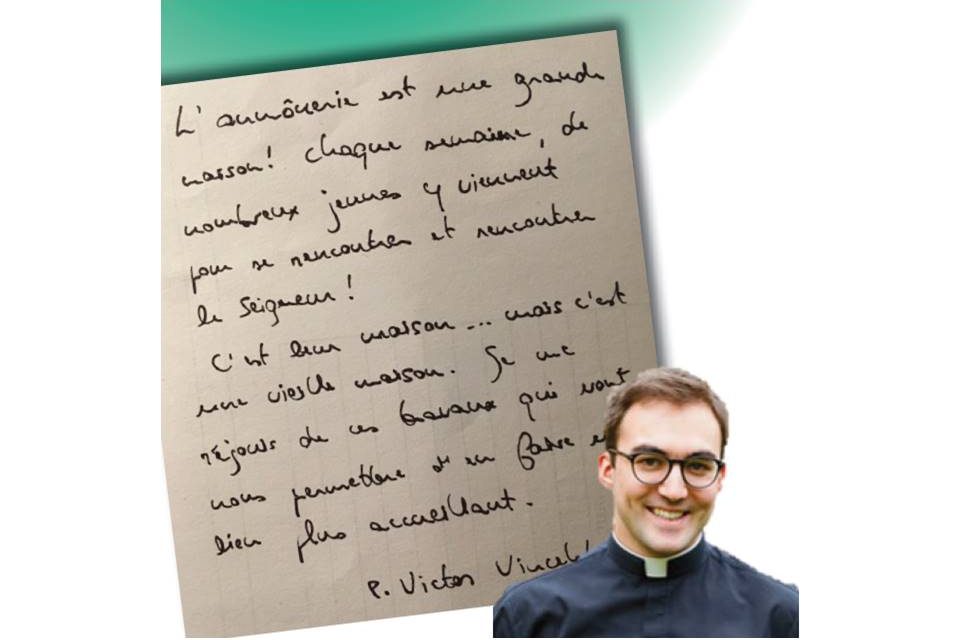 L'aumônerie est une grande
maison! chaque semaine, de
nombreux jeunes y viennent
pour se rencontrer et rencontrer
le Seigneur!
C'est leur maison... mais c'est
une vieille maison. Je me
réjouis de ces travaux qui vont
nous permettre d'en faire
lieu plus accueillant.
P. Victor